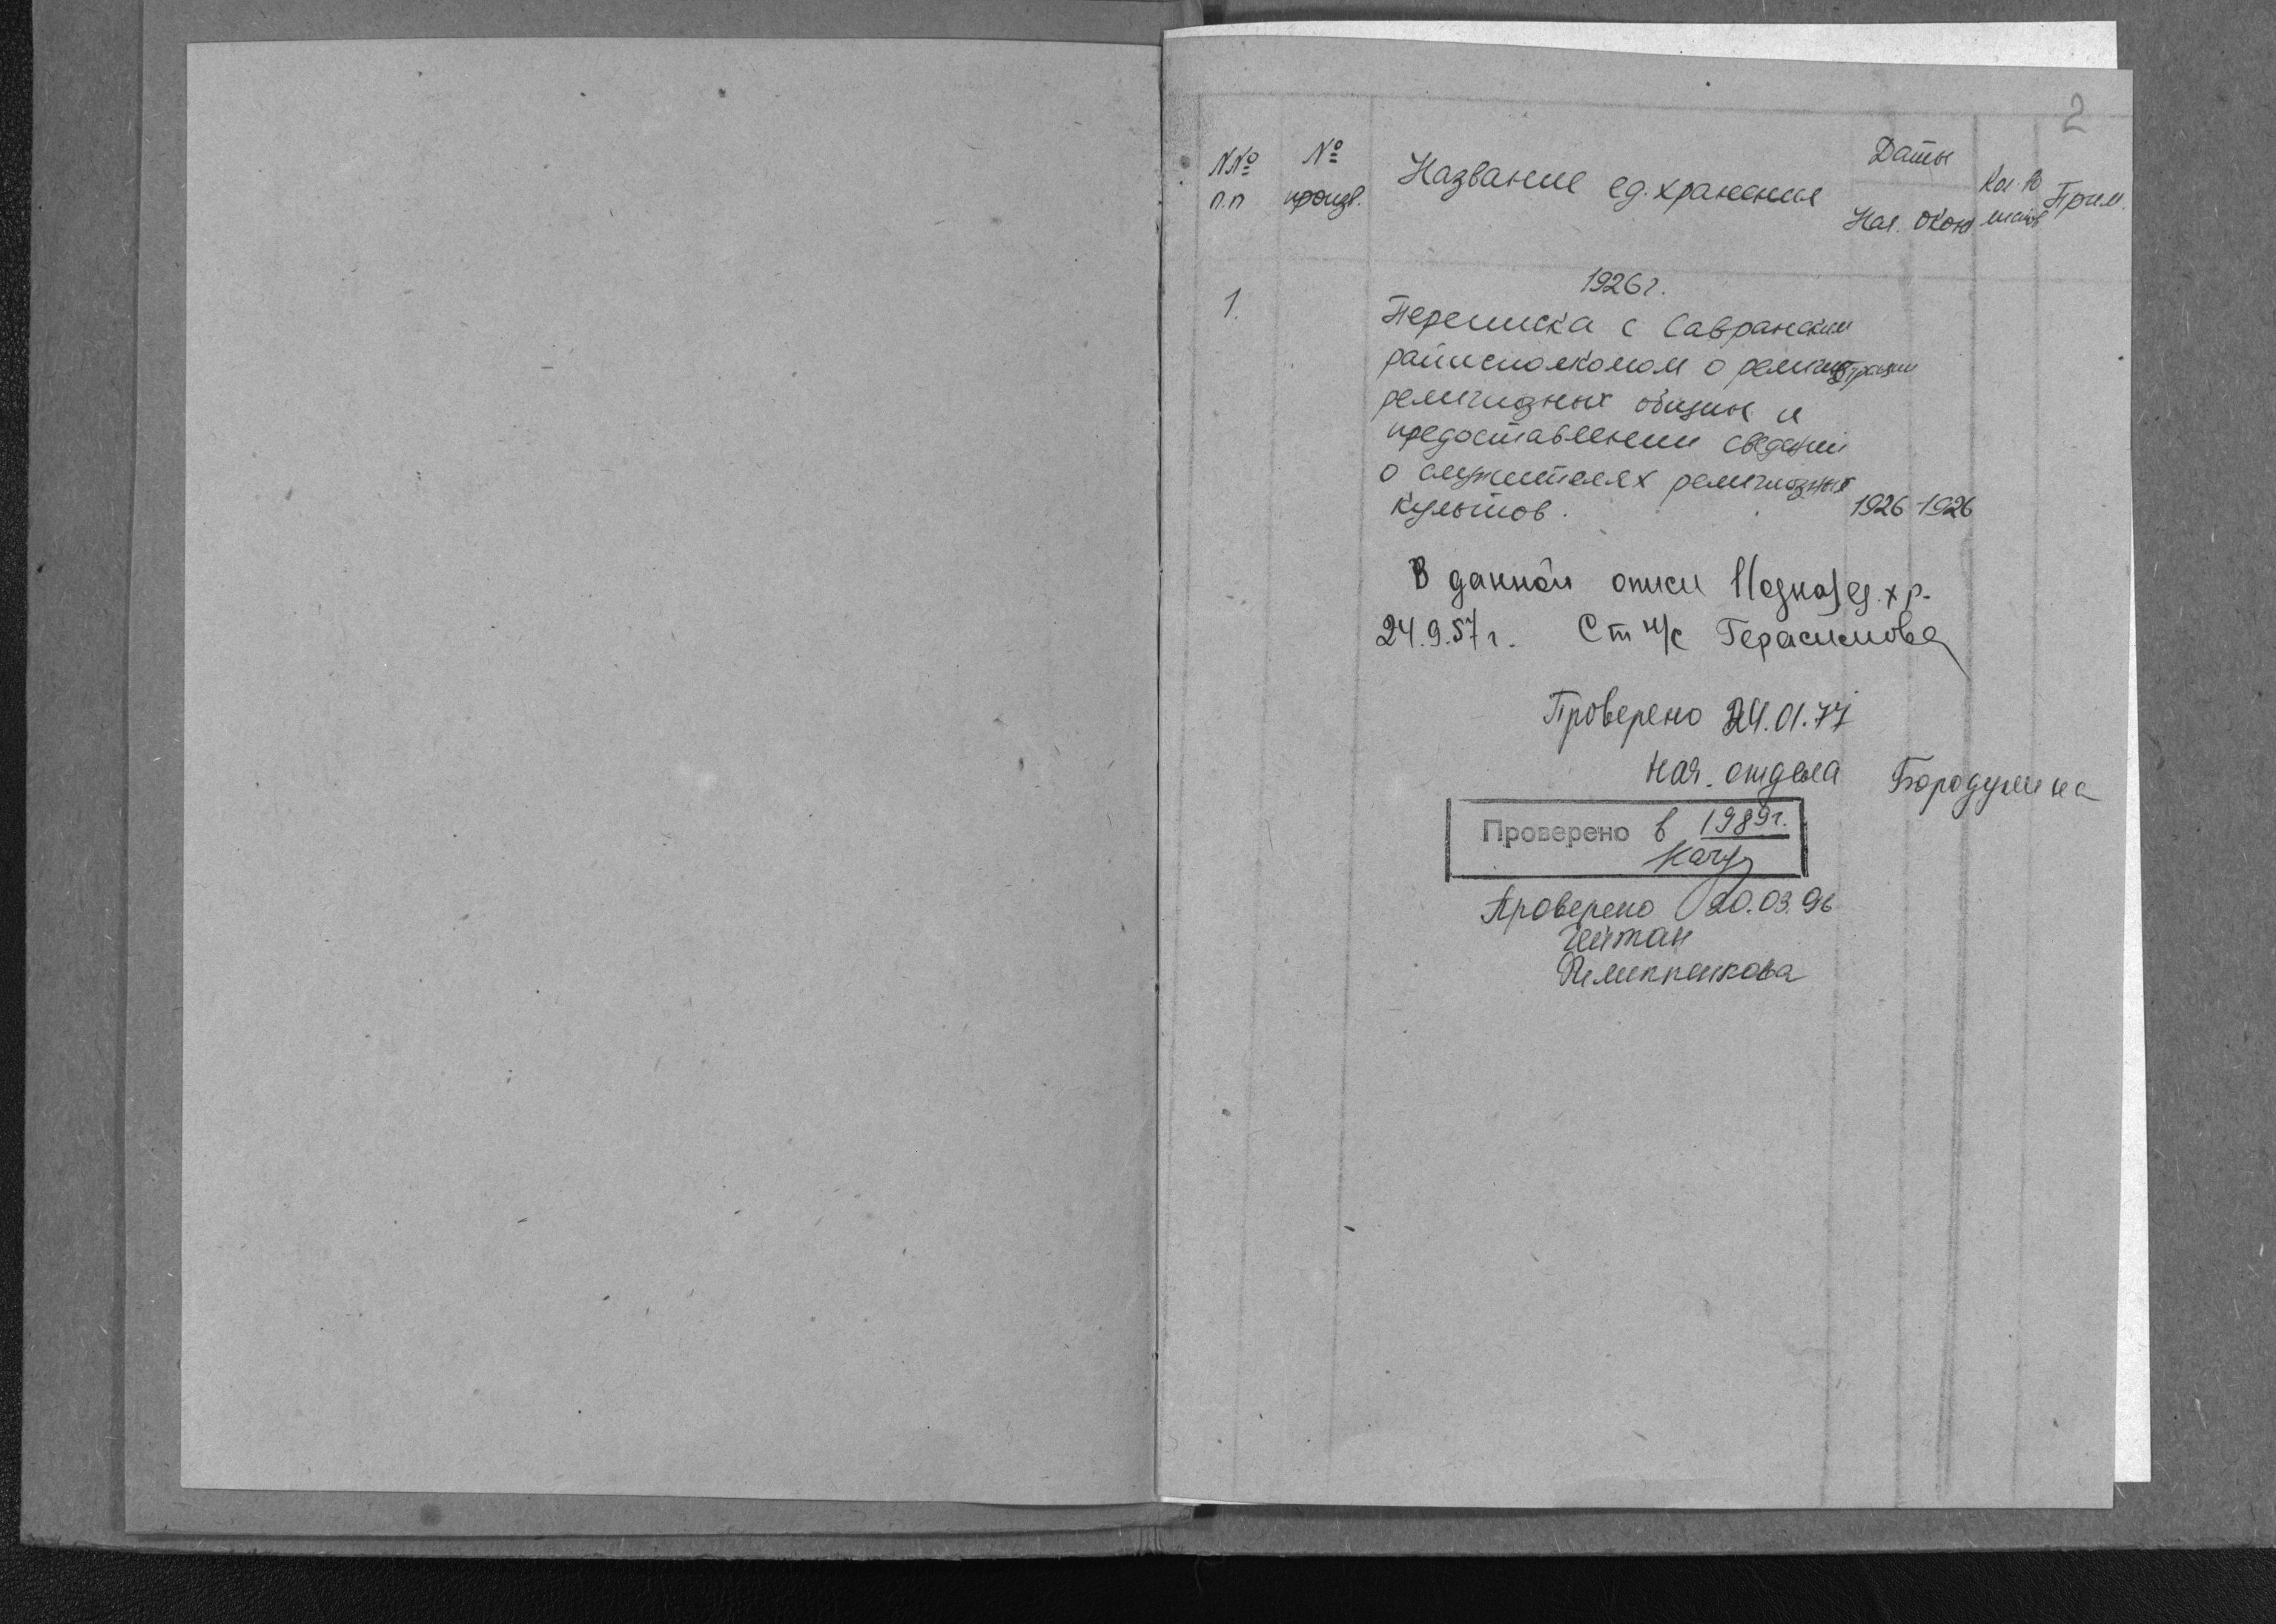 2
NNº п.п
№ произв.
Название ед. хранения
Даты
Нач. Окон.
Кол-во листов
Прим.
1926 г.
1. Переписка с Савранским
райисполкомом о регистрации
религиозных общин и
предоставлении сведений
о служителях религиозных
культов. 1926-1926
В данной описи 1(одна) ед. хр.
24.9.57 г. Ст н/с Герасимова
Проверено 24.01.77
нач. отдела Бородулина
Проверено в 1989 г.
Проверено 20.03.96